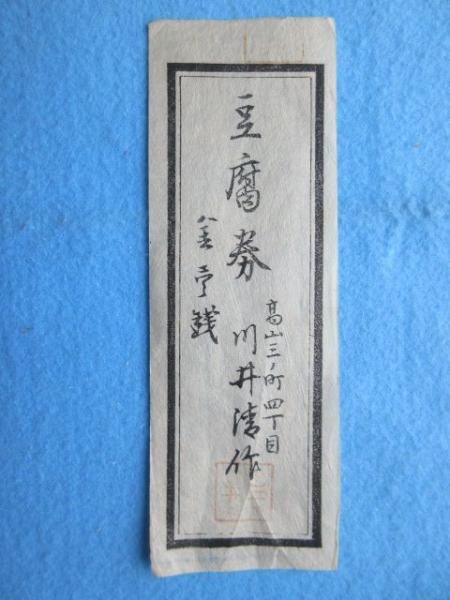 豆腐券
金壱銭
高山三ノ町四丁目
川井清作